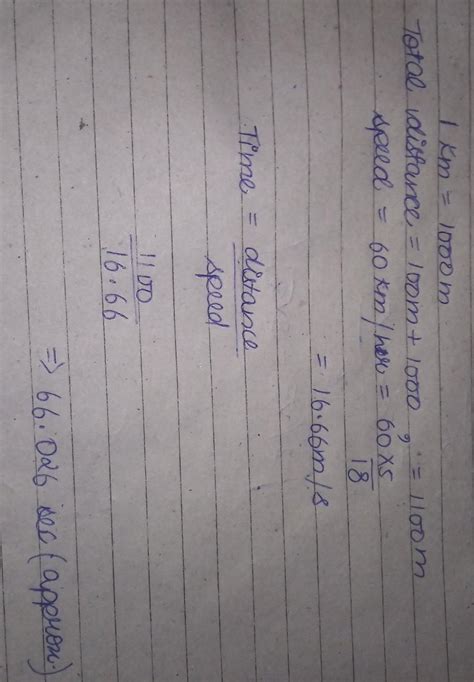 1 Km = 1000m
Total distance = 100m + 1000 = 1100m
speed = 60 km/hor = 60 x 5
18
= 16.66m/s
Time = distance
speed
1100
16.66
=> 66.026 sec (approx.)